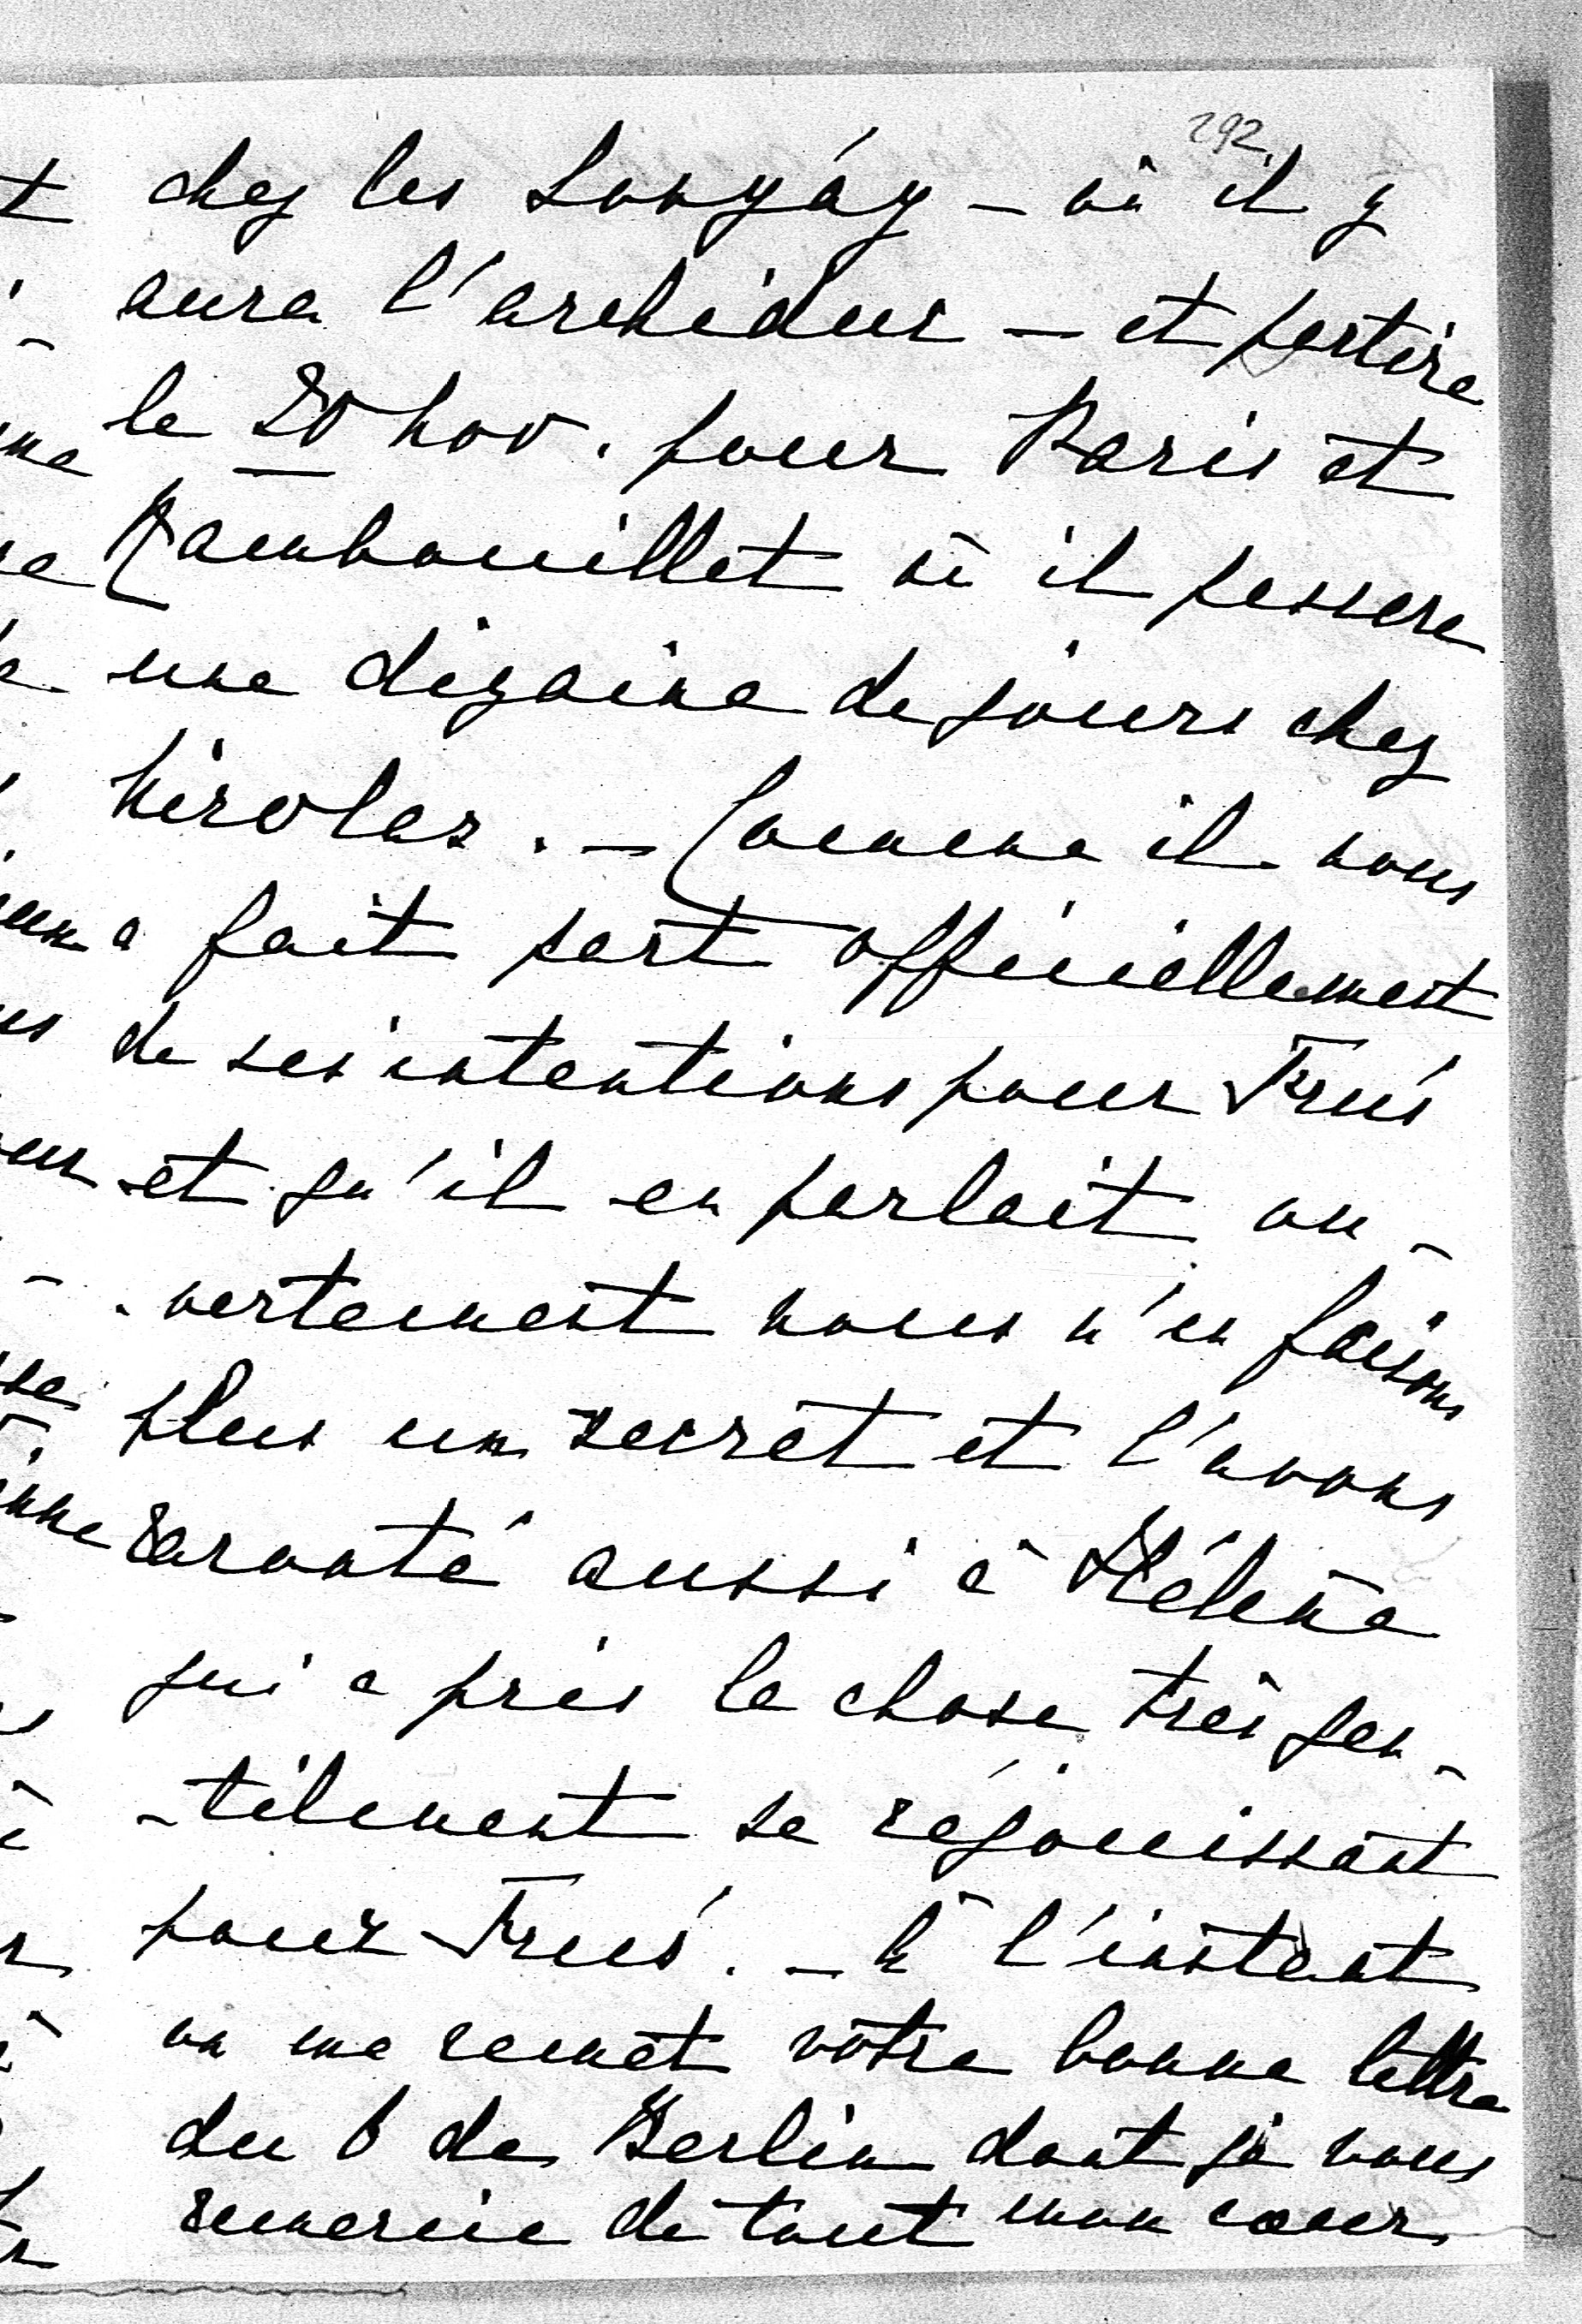 292
chez les Lonyáy – où il y
aura l'archiduc – et partira
le 20 nov. pour Paris et
Rambouillet où il passera
une dizaine de jours chez
Nicolas. – Comme il nous
a fait part officiellement
de ses intentions pour Troïs
et qu'il en parlait ou-
-vertement nous n'en faisons
plus un secret et l'avons
raconté aussi à Hélène
qui a pris la chose très gen-
-tilement se réjouissant
pour . – A l'instant
on me remet votre bonne lettre
du 6 de Berlin dont je vous
remercie de tout mon cœur